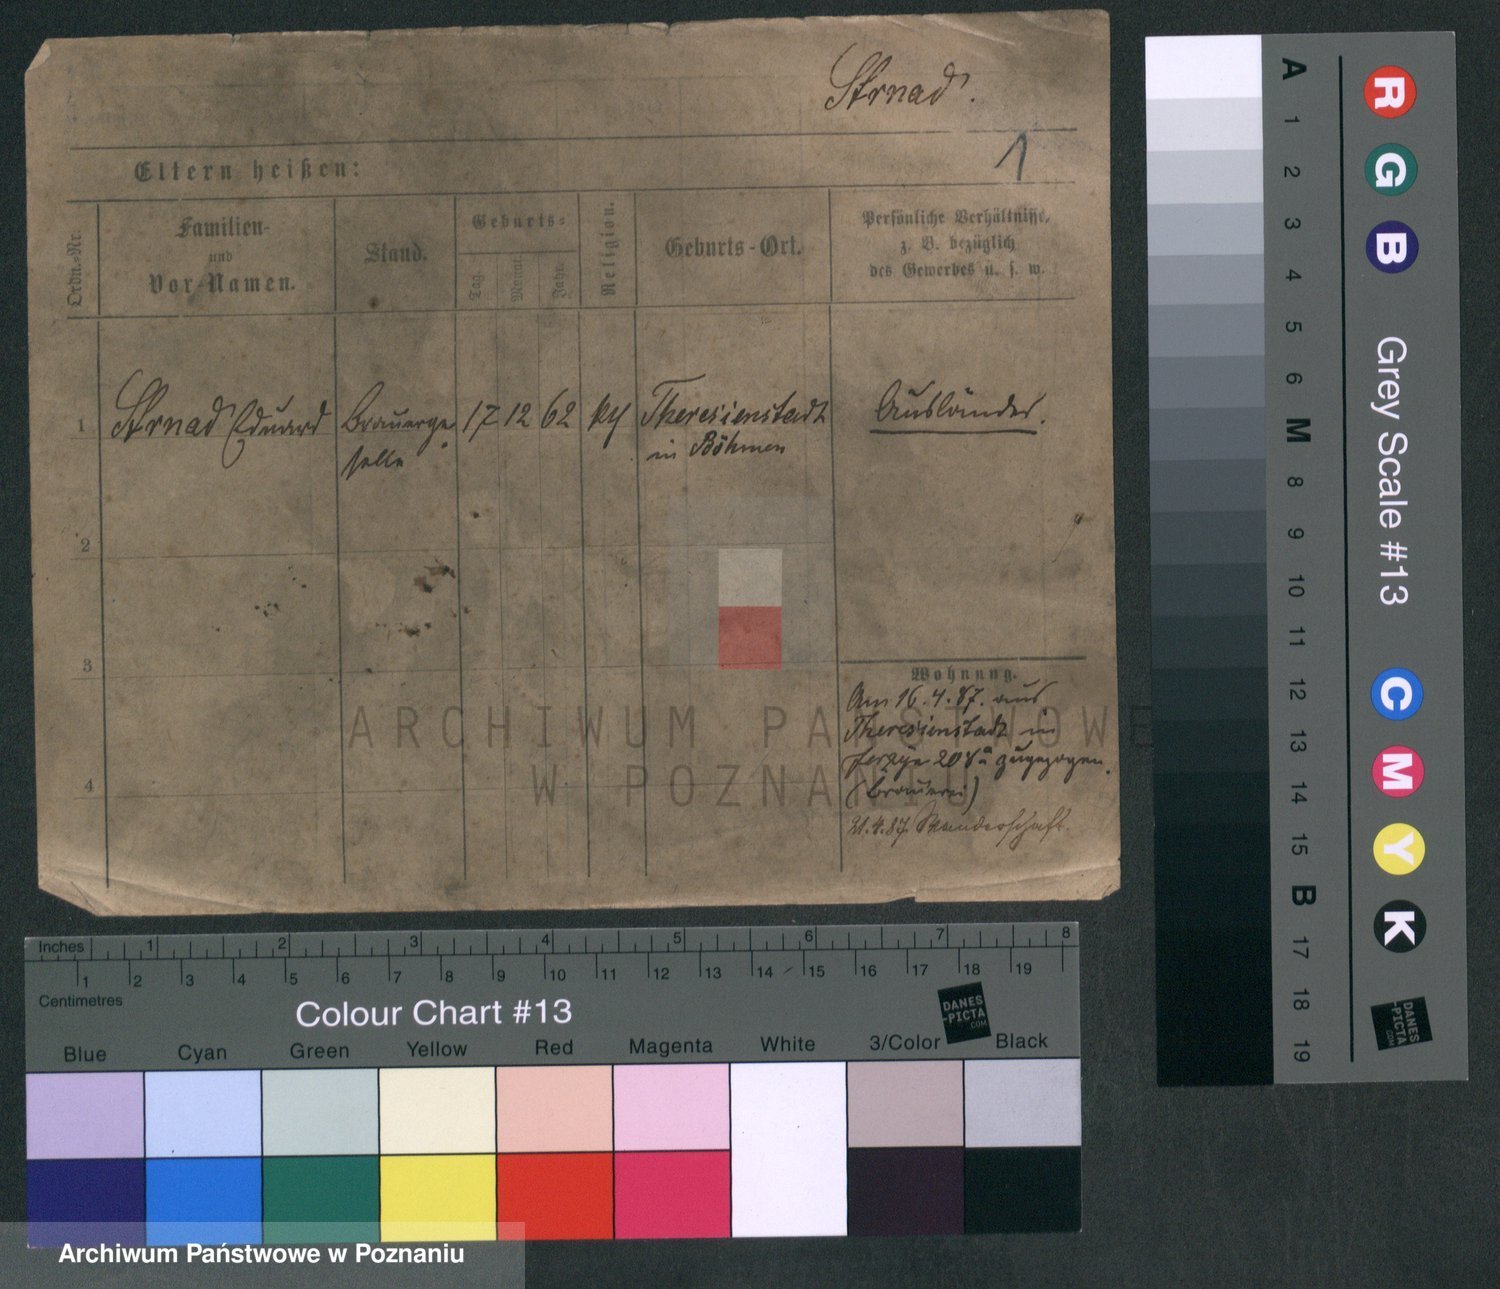 Strnad.
1
Eltern heißen:
Ordn.-Nr.
Familien-
und
Vor-Namen.
Stand.
Geburts-
Tag.
Monat.
Jahr.
Religion.
Geburts-Ort.
Persönliche Verhältnisse,
z. B. bezüglich
des Gewerbes u. s. w.
1 Strnad Eduard Brauerge 17 12 62 Theresienstadt Ausländer.
selle in Böhmen
2
3
4
Wohnung.
Am 16.4.87. aus
Theresienstadt in
Jerzyce 208a zugezogen.
(Brauerei)
21.4.87. Wanderschaft.
ARCHIWUM PAŃSTWOWE
W POZNANIU
Inches 1 2 3 4 5 6 7 8
1 2 3 4 5 6 7 8 9 10 11 12 13 14 15 16 17 18 19
Centimetres
Colour Chart #13
DANES
-PICTA
.COM
Blue Cyan Green Yellow Red Magenta White 3/Color Black
Archiwum Państwowe w Poznaniu
A 1 2 3 4 5 6 M 8 9 10 11 12 13 14 15 B 17 18 19
R G B
Grey Scale #13
C M Y K
DANES
-PICTA
.COM